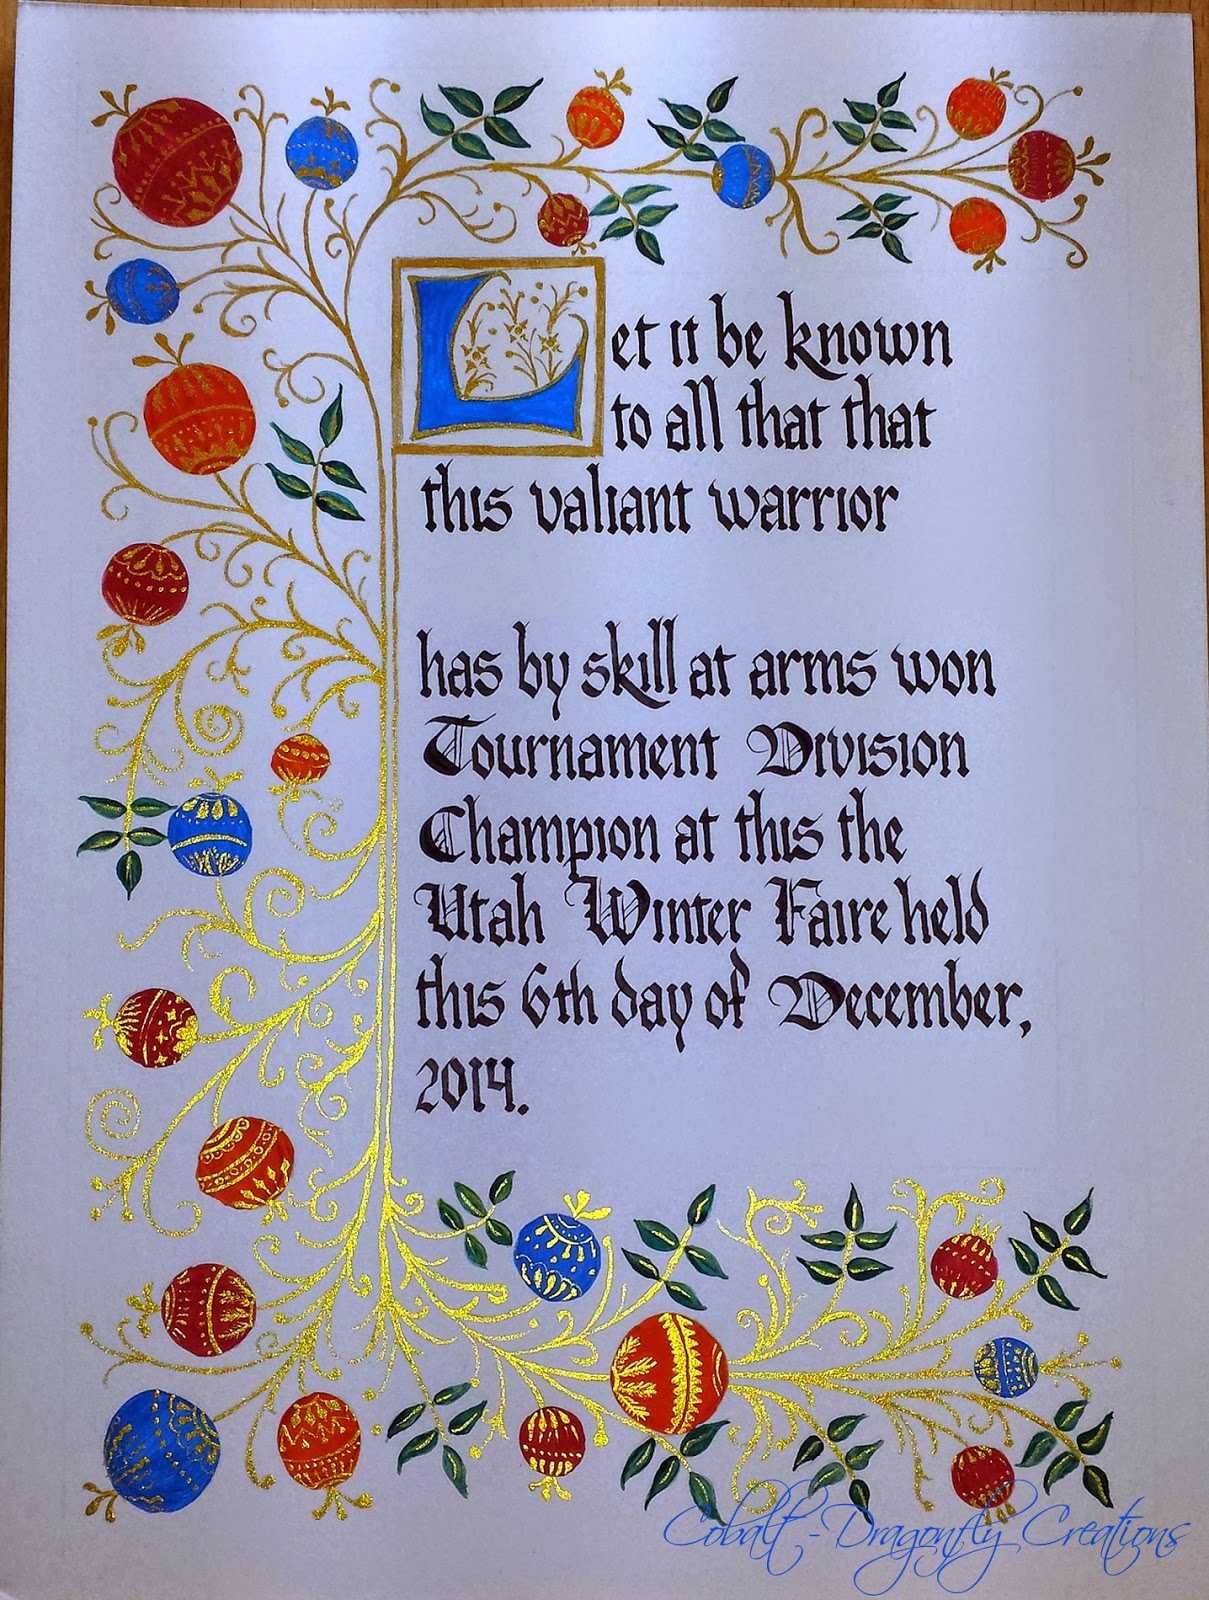 Let it be known
to all that that
this valiant warrior
has by skill at arms won
Tournament Division
Champion at this the
Utah Winter Faire held
this 6th day of December,
2014.
Cobalt-Dragonfly Creations